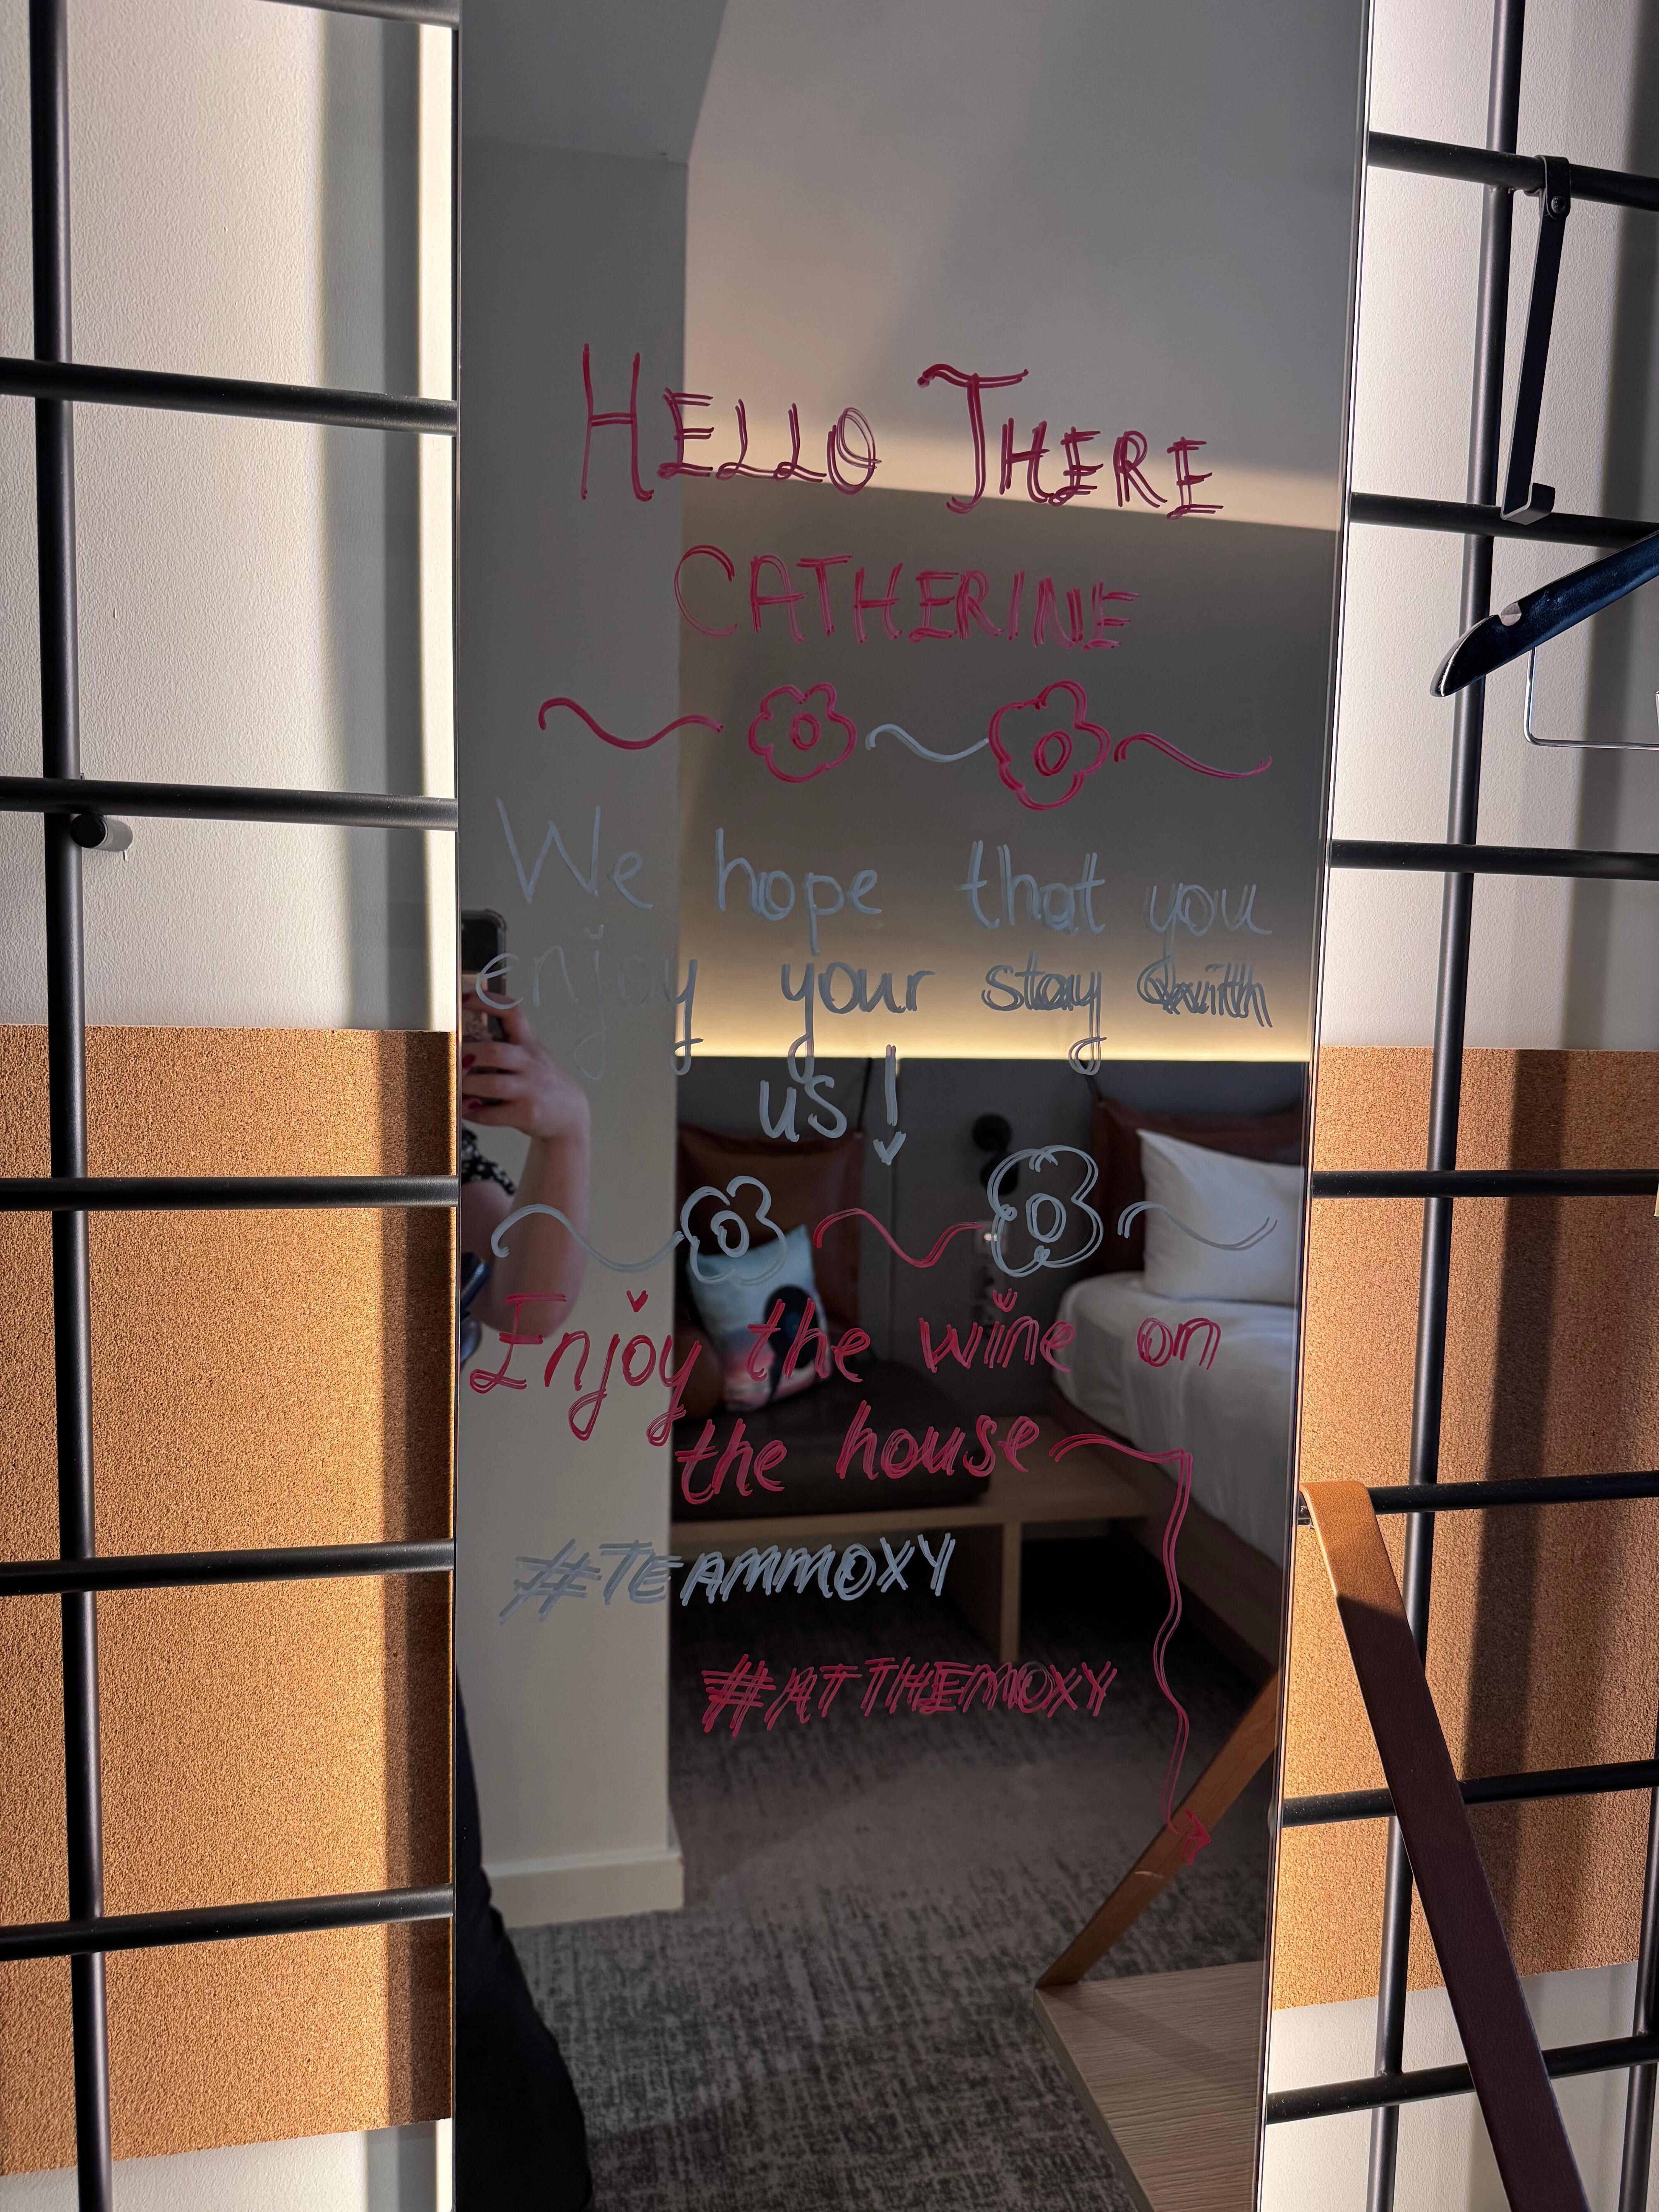 HELLO THERE
CATHERINE
We hope that you
enjoy your stay with
us!
Enjoy the wine on
the house
#TEAMMOXY
#ATTHEMOXY